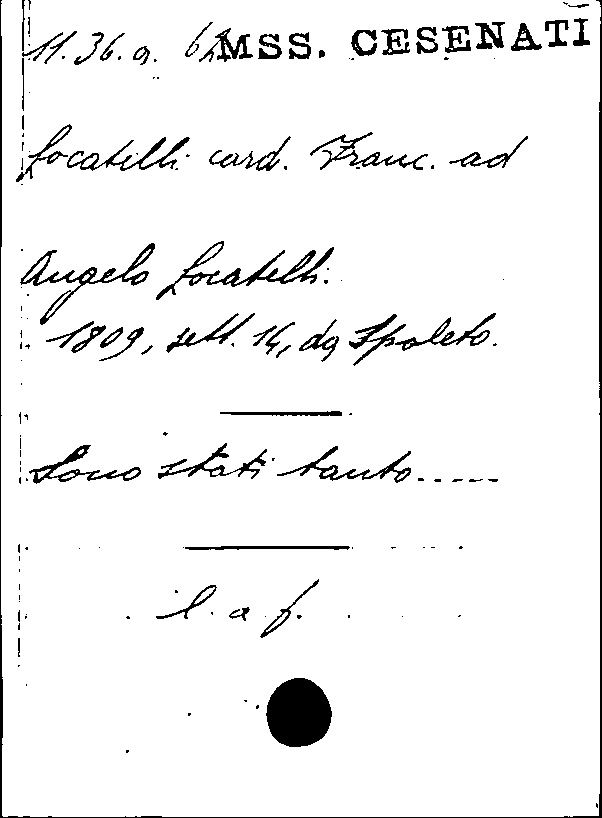 11. 36. a. 62 MSS. CESENATI
Locatelli card. Franc. ad
Angelo Locatelli.
1809, sett. 14, da Spoleto.
Sono stati tanto.....
l. a f.